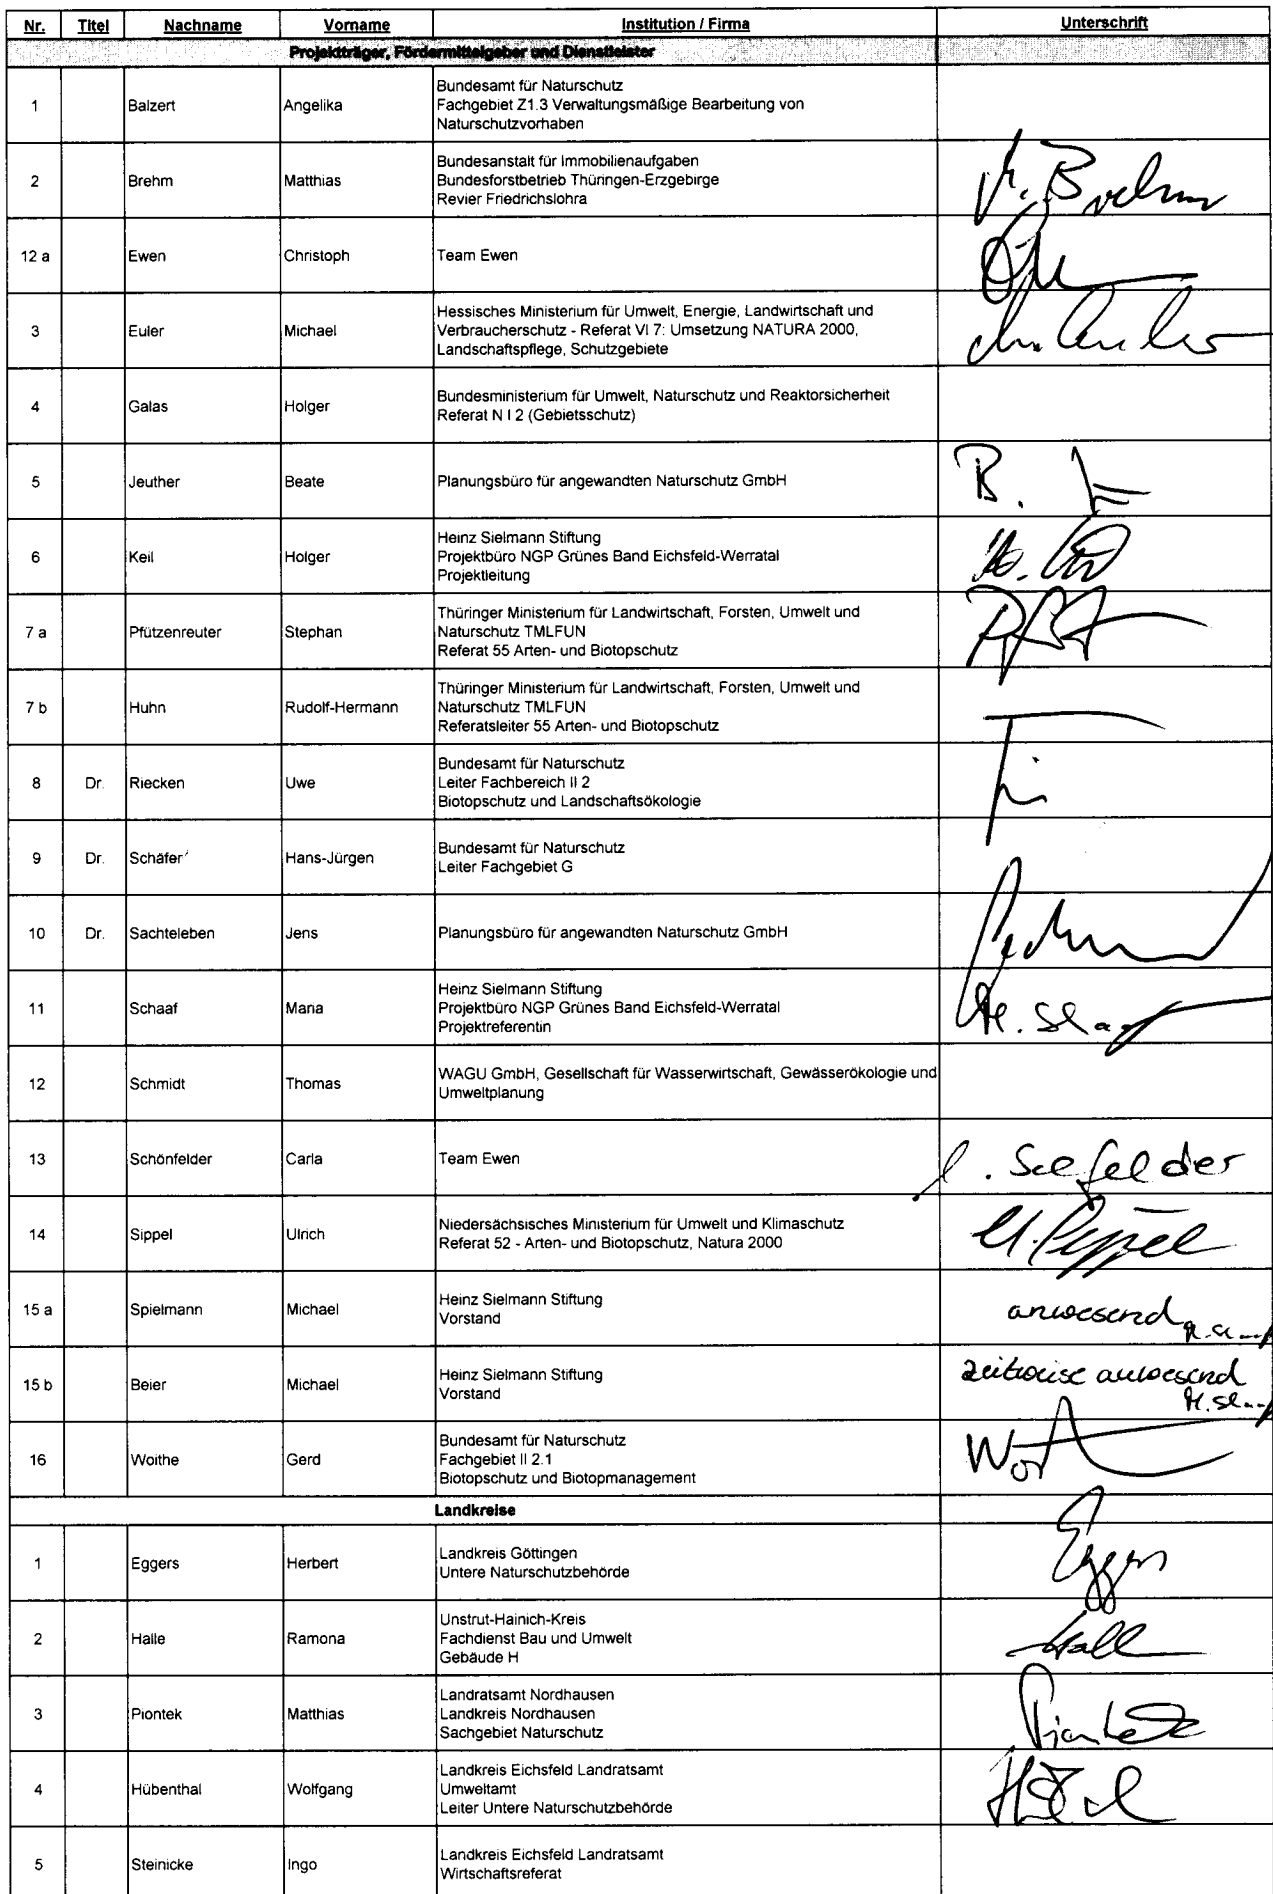 Nr. Titel Nachname Vorname Institution / Firma Unterschrift
Projektträger, Fördermittelgeber und Dienstleister
1 Balzert Angelika Bundesamt für Naturschutz
Fachgebiet Z1.3 Verwaltungsmäßige Bearbeitung von
Naturschutzvorhaben
2 Brehm Matthias Bundesanstalt für Immobilienaufgaben
Bundesforstbetrieb Thüringen-Erzgebirge
Revier Friedrichslohra
M. Brehm
12 a Ewen Christoph Team Ewen
3 Euler Michael Hessisches Ministerium für Umwelt, Energie, Landwirtschaft und
Verbraucherschutz - Referat VI 7: Umsetzung NATURA 2000,
Landschaftspflege, Schutzgebiete
4 Galas Holger Bundesministerium für Umwelt, Naturschutz und Reaktorsicherheit
Referat N I 2 (Gebietsschutz)
5 Jeuther Beate Planungsbüro für angewandten Naturschutz GmbH
B.
6 Keil Holger Heinz Sielmann Stiftung
Projektbüro NGP Grünes Band Eichsfeld-Werratal
Projektleitung
7 a Pfützenreuter Stephan Thüringer Ministerium für Landwirtschaft, Forsten, Umwelt und
Naturschutz TMLFUN
Referat 55 Arten- und Biotopschutz
7 b Huhn Rudolf-Hermann Thüringer Ministerium für Landwirtschaft, Forsten, Umwelt und
Naturschutz TMLFUN
Referatsleiter 55 Arten- und Biotopschutz
8 Dr. Riecken Uwe Bundesamt für Naturschutz
Leiter Fachbereich II 2
Biotopschutz und Landschaftsökologie
9 Dr. Schäfer Hans-Jürgen Bundesamt für Naturschutz
Leiter Fachgebiet G
10 Dr. Sachteleben Jens Planungsbüro für angewandten Naturschutz GmbH
11 Schaaf Maria Heinz Sielmann Stiftung
Projektbüro NGP Grünes Band Eichsfeld-Werratal
Projektreferentin
12 Schmidt Thomas WAGU GmbH, Gesellschaft für Wasserwirtschaft, Gewässerökologie und
Umweltplanung
13 Schönfelder Carla Team Ewen
14 Sippel Ulrich Niedersächsisches Ministerium für Umwelt und Klimaschutz
Referat 52 - Arten- und Biotopschutz, Natura 2000
U. Sippel
15 a Spielmann Michael Heinz Sielmann Stiftung
Vorstand
anwesend
15 b Beier Michael Heinz Sielmann Stiftung
Vorstand
zeitweise anwesend
16 Woithe Gerd Bundesamt für Naturschutz
Fachgebiet II 2.1
Biotopschutz und Biotopmanagement
Landkreise
1 Eggers Herbert Landkreis Göttingen
Untere Naturschutzbehörde
Eggers
2 Halle Ramona Unstrut-Hainich-Kreis
Fachdienst Bau und Umwelt
Gebäude H
Halle
3 Piontek Matthias Landratsamt Nordhausen
Landkreis Nordhausen
Sachgebiet Naturschutz
Piontek
4 Hübenthal Wolfgang Landkreis Eichsfeld Landratsamt
Umweltamt
Leiter Untere Naturschutzbehörde
5 Steinicke Ingo Landkreis Eichsfeld Landratsamt
Wirtschaftsreferat